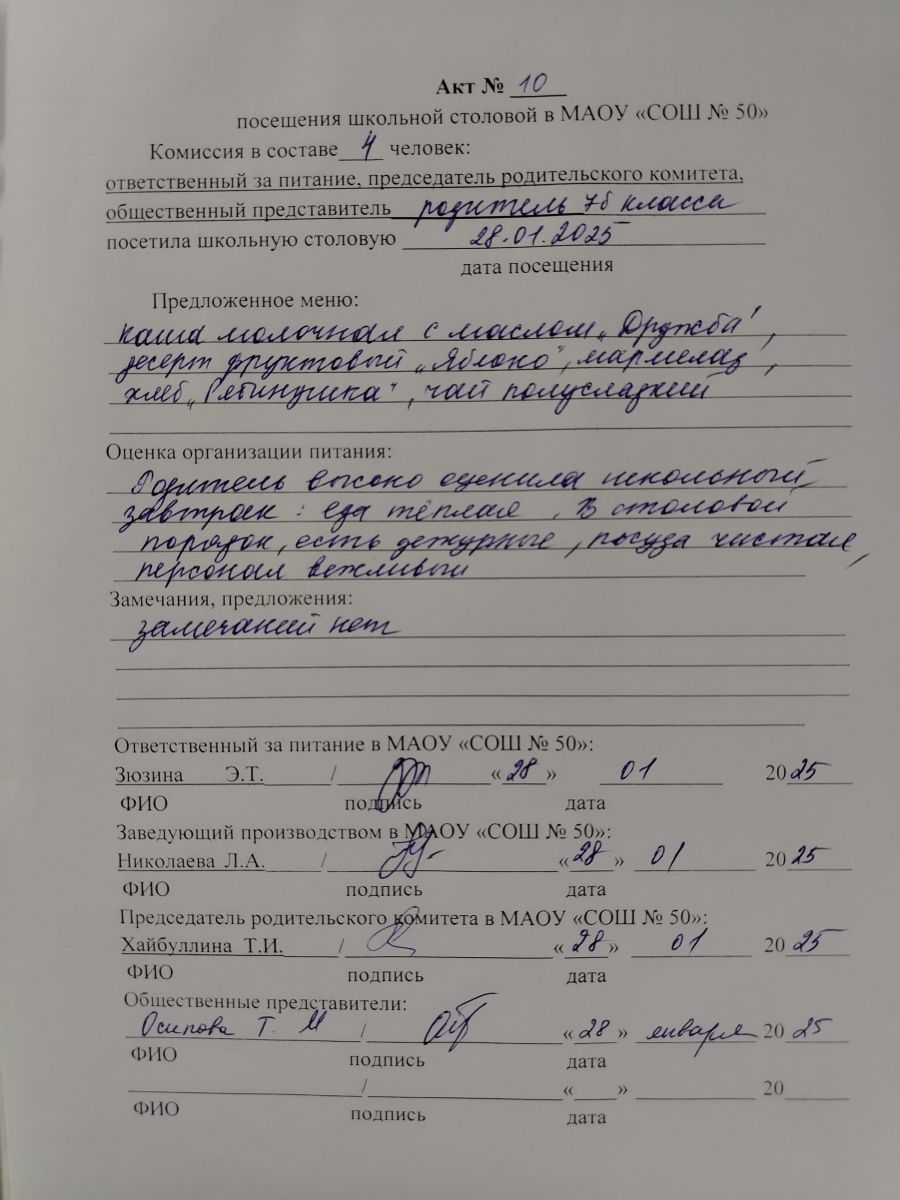 Акт № 10
посещения школьной столовой в МАОУ «СОШ № 50»
Комиссия в составе 4 человек:
ответственный за питание, председатель родительского комитета,
общественный представитель родитель 7б класса
посетила школьную столовую 28.01.2025
дата посещения
Предложенное меню:
каша молочная с маслом „Дружба",
десерт фруктовый „Яблоко", мармелад,
хлеб „Рябинушка", чай полусладкий
Оценка организации питания:
Родитель высоко оценила школьный
завтрак: еда тёплая. В столовой
порядок, есть дежурные, посуда чистая,
персонал вежливый
Замечания, предложения:
замечаний нет
Ответственный за питание в МАОУ «СОШ № 50»:
Зюзина Э.Т. / «28» 01 2025
ФИО подпись дата
Заведующий производством в МАОУ «СОШ № 50»:
Николаева Л.А. / «28» 01 2025
ФИО подпись дата
Председатель родительского комитета в МАОУ «СОШ № 50»:
Хайбуллина Т.И. / «28» 01 2025
ФИО подпись дата
Общественные представители:
Осипова Т. М / «28» января 2025
ФИО подпись дата
/ « » 20
ФИО подпись дата